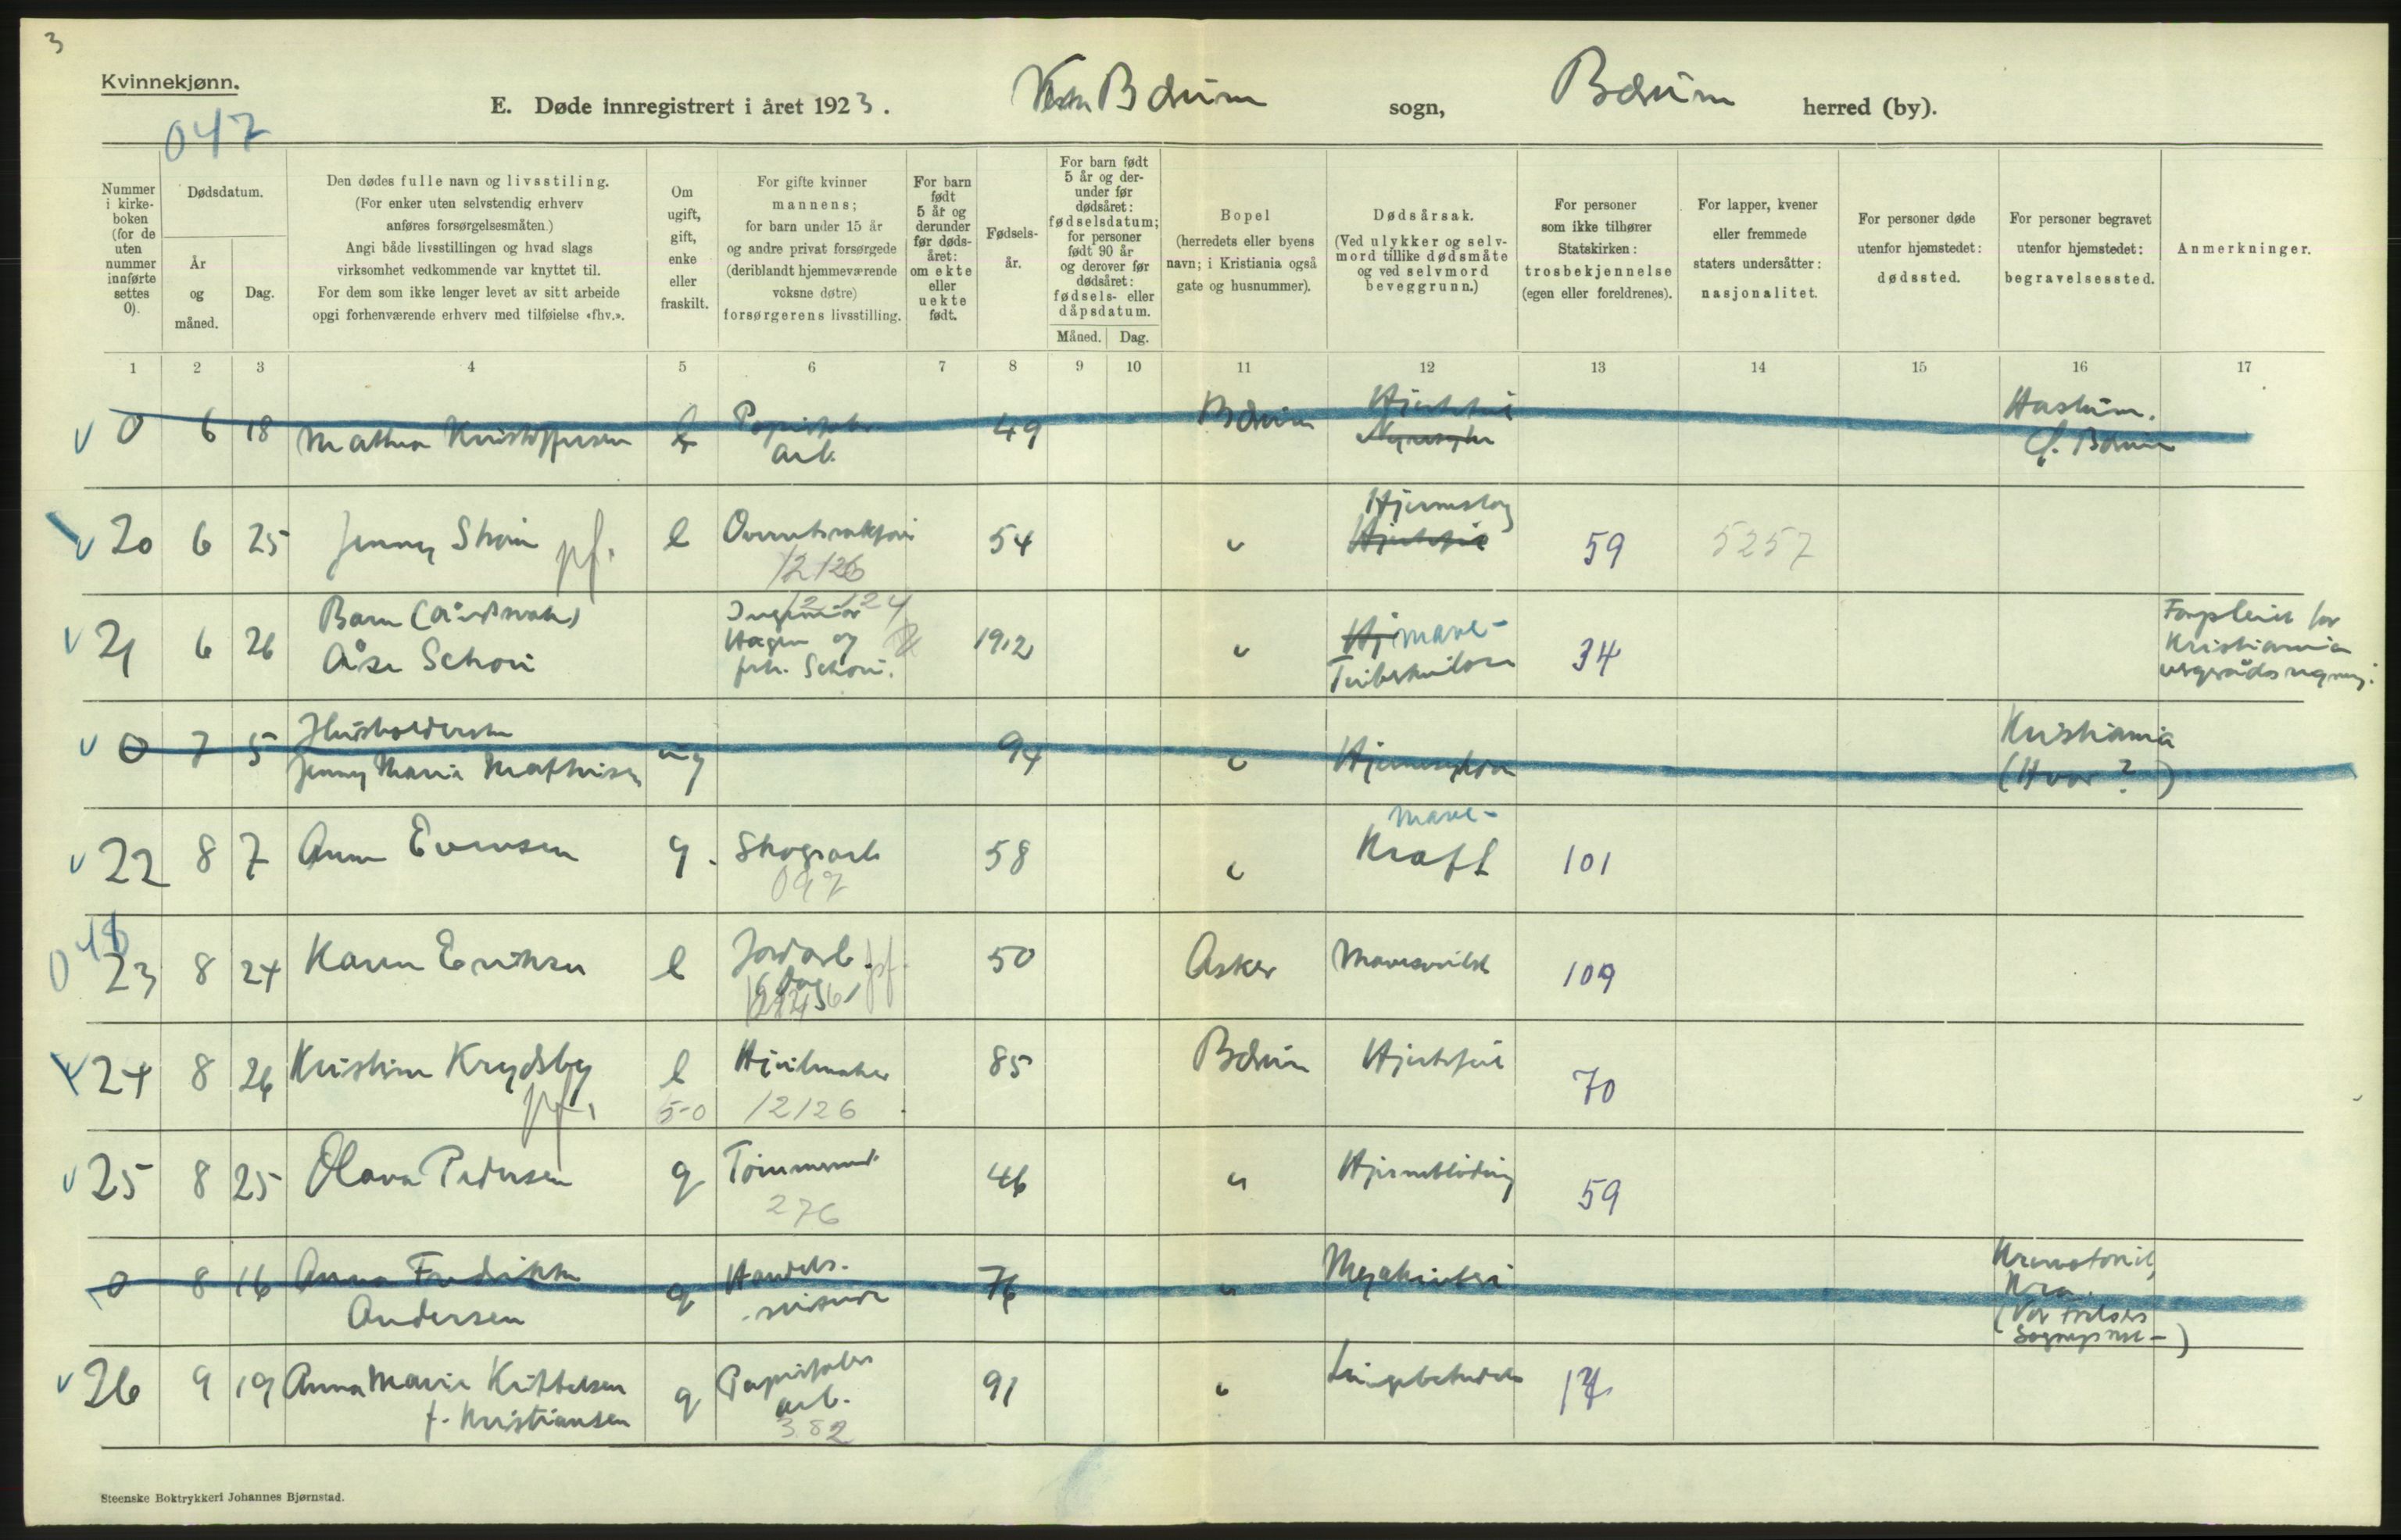 3
Kvinnekjønn.
E. Døde innregistrert i året 1923.
Vestre Bærum sogn, Bærum herred (by).
047
Nummer i kirke-boken (for de uten nummer innførte settes 0).
Dødsdatum.
År og måned.
Dag.
Den dødes fulle navn og livsstiling.
(For enker uten selvstendig erhverv
anføres forsørgelsesmåten.)
Angi både livsstillingen og hvad slags
virksomhet vedkommende var knyttet til.
For dem som ikke lenger levet av sitt arbeide
opgi forhenværende erhverv med tilføielse «fhv.».
Om ugift, gift, enke eller fraskilt.
For gifte kvinner
mannens;
for barn under 15 år
og andre privat forsørgede
(deriblandt hjemmeværende
voksne døtre)
forsørgerens livsstilling.
For barn født 5 år og derunder før døds-året: om ekte eller uekte født.
Fødsels-år.
For barn født
5 år og der-
under før
dødsåret:
fødselsdatum;
for personer
født 90 år
og derover før
dødsåret:
fødsels- eller
dåpsdatum.
Måned. Dag.
Bopel
(herredets eller byens
navn; i Kristiania også
gate og husnummer).
Dødsårsak.
(Ved ulykker og selv-
mord tillike dødsmåte
og ved selvmord
beveggrunn.)
For personer
som ikke tilhører
Statskirken:
trosbekjennelse
(egen eller foreldrenes).
For lapper, kvener
eller fremmede
staters undersåtter:
nasjonalitet.
For personer døde
utenfor hjemstedet:
dødssted.
For personer begravet
utenfor hjemstedet:
begravelsessted.
Anmerkninger.
1 2 3 4 5 6 7 8 9 10 11 12 13 14 15 16 17
0 6 18 Mathea Kristoffersen arb. 49 Bærum Haslum. Ø. Bærum
20 6 25 Jenny pf. e 12126 54 " Hjerneslag Hjertefeil 59 5257
21 6 26 Barn Åse Schou Ingeniør Hagen og frk. Schou. 12124 1912 " Hj mave- Tuberkulose 34 Forpleiet for Kristiania
0 7 5 Husholderske Jenny Marie Mathisen ug 94 " Kristiania (Hvor?)
22 8 7 Anna Evensen g. Skogsarb 097 58 " mave- Kraft 101
048
23 8 24 Karen Eriksen e Jordarb. pf. 50 Asker 109
24 8 26 Kristine Krydsby pf. e 50 Hjulmaker 12126 85 Bærum Hjertefeil 70
25 8 25 Olava Pedersen g Tømmermd. 276 46 " Hjerneblødning 59
0 8 16 Anna Fredrikke Andersen g Handels-reisende 76 " Krematoriet, Kra. (Vor Frelsers )
26 9 19 Anna Marie Kittelsen f. Kristiansen g arb. 382 91 " Lungebetendelse
Steenske Boktrykkeri Johannes Bjørnstad.